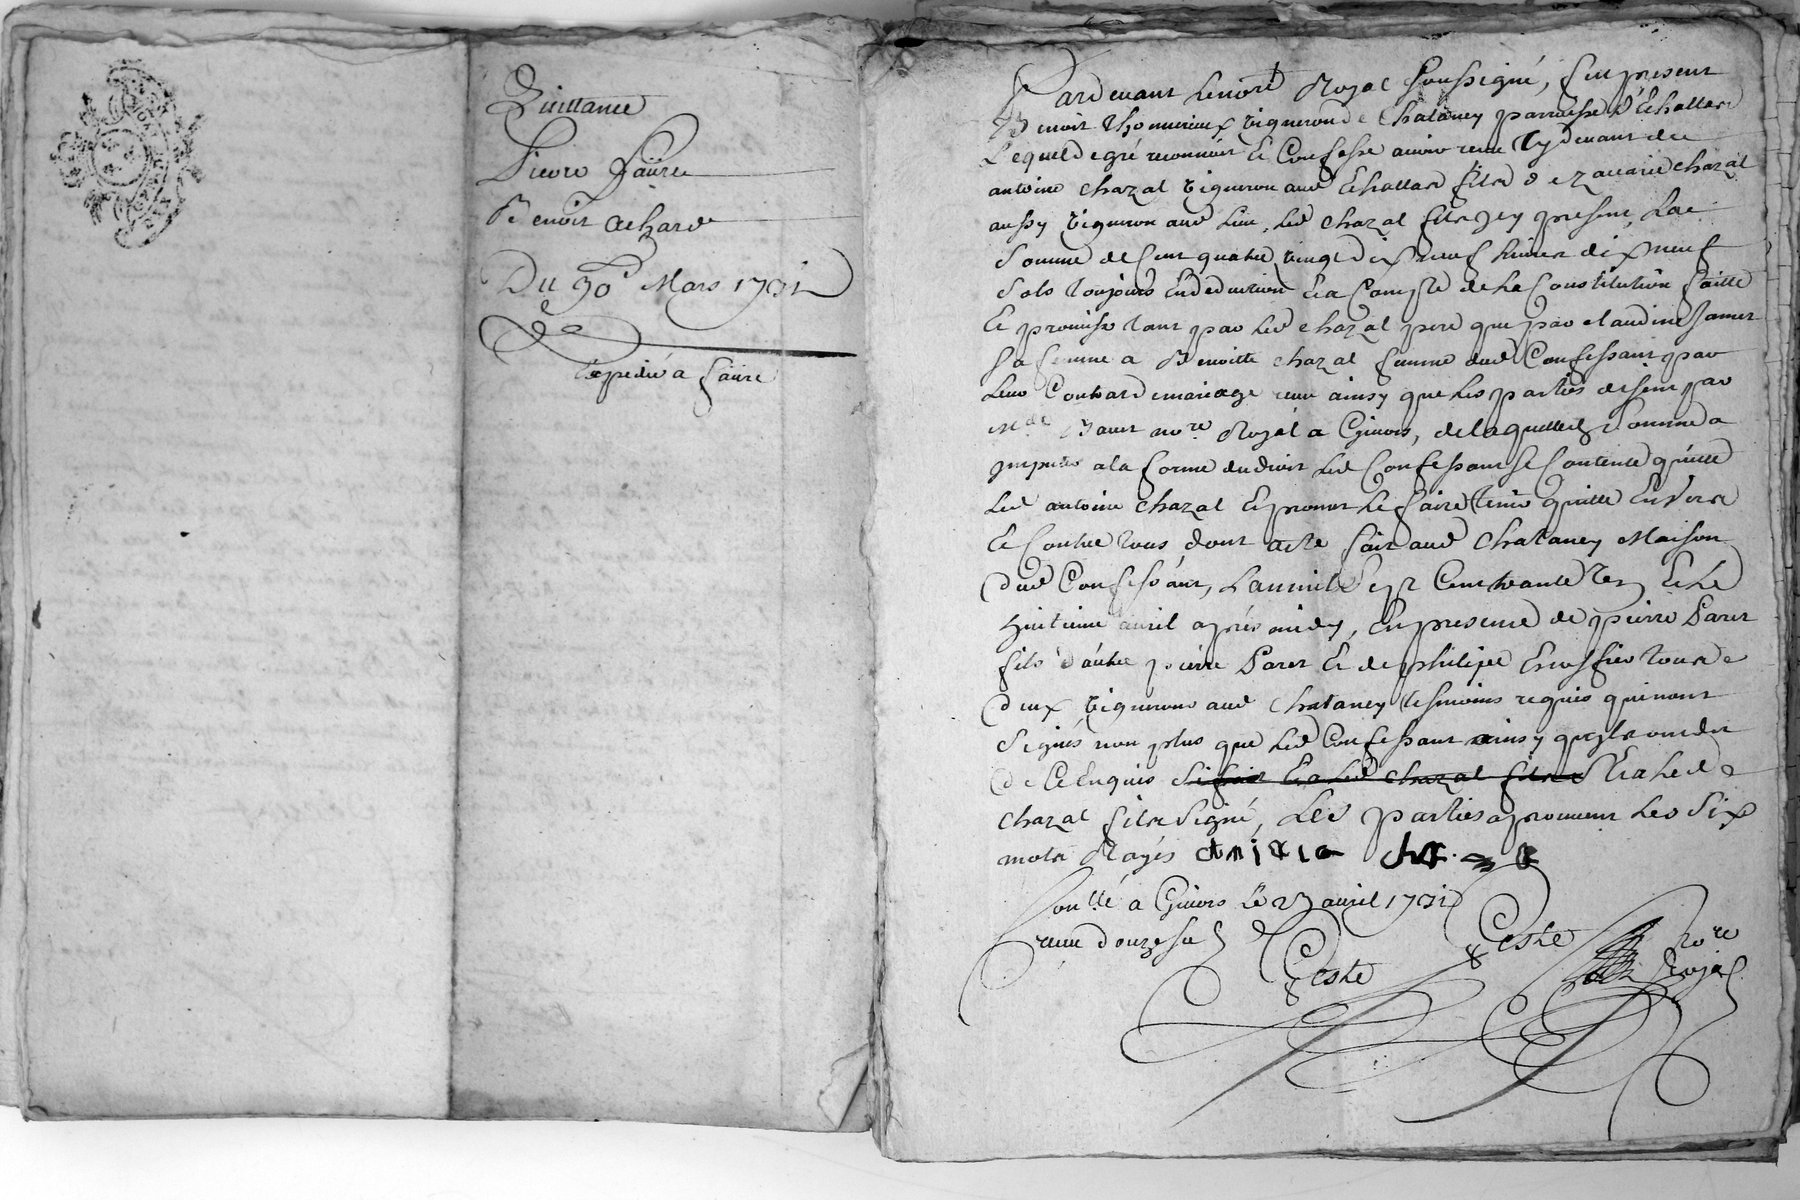 Quittance
Pierre Faure
Benoit Achard
Du 30e Mars 1731
Expedié a faure
Pardevant le no.re Royal Soussigné, fut present
Benoit thomerieux vigneron de Chataney parroisse d'Echallas
Lequel de gré reconnoit et Confesse avoir receu Cy devant de
antoine chazal vigneron aud Echallas fils de zacarie chazal
aussy vigneron aud lieu, led chazal fils jcy present, La
somme de Cent quatre vingt dix neuf livres dix neuf
sols toujours En deduction Et a Compte de La Constitution faitte
Et promise tant par led chazal pere que par claudine Jamet
sa femme a Benoitte chazal femme dud Confessant par
leur Contract de mariage receu ainsy que les parties disent par
no.re Royal a Givors, de laquelle somme a
jmputer a la forme du droit led Confessant se Contente quitte
led antoine chazal Et promet le faire tenir quitte Envers
Et Contre tous dont acte fait aud Chataney Maison
dud Confessant, L'an mil sept Cent trante Et Le
huitieme avril après midy, En presence de pierre Paret
fils d'autre pierre Paret Et de philipe tous
deux vignerons aud Chataney tesmoins requis qui n'ont
signés non plus que led Confessant ainsy qu'jls ont dit
de Ce Enquis Et a led chazal fils Et a led
chazal fils signé, Les parties aprouvent les six
mots Rayés
Con.llé a Givors le 23 avril 1731
receu douze sols
Geste
Geste
no.re
Royal